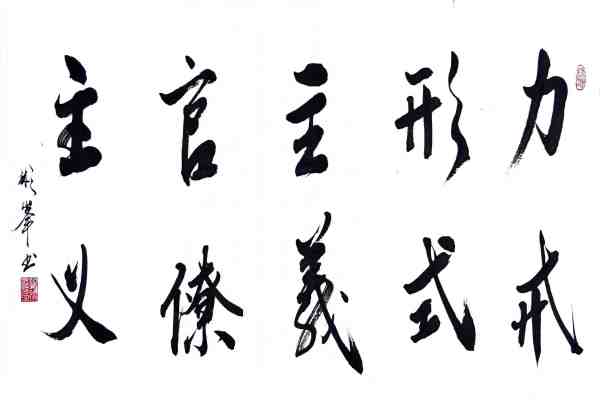 力戒
形式
主義
官僚
主义
彬峯书